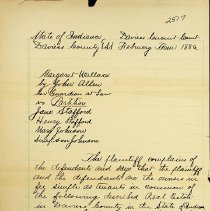 2517
State of Indiana, Daviess Circuit Court
Daviess County, SS February Term 1886
Margaret Wallace
by John Allen
her Guardian at Law
vs Partition
Jane Stafford
Henry Stafford
Mary Johnson
Johnson
The plaintiff complains of
the defendant and says that the plaintiff
and the defendants are the owners in
fee simple as tenants in common of
the following described Real Estate
in Daviess County in the State of Indiana